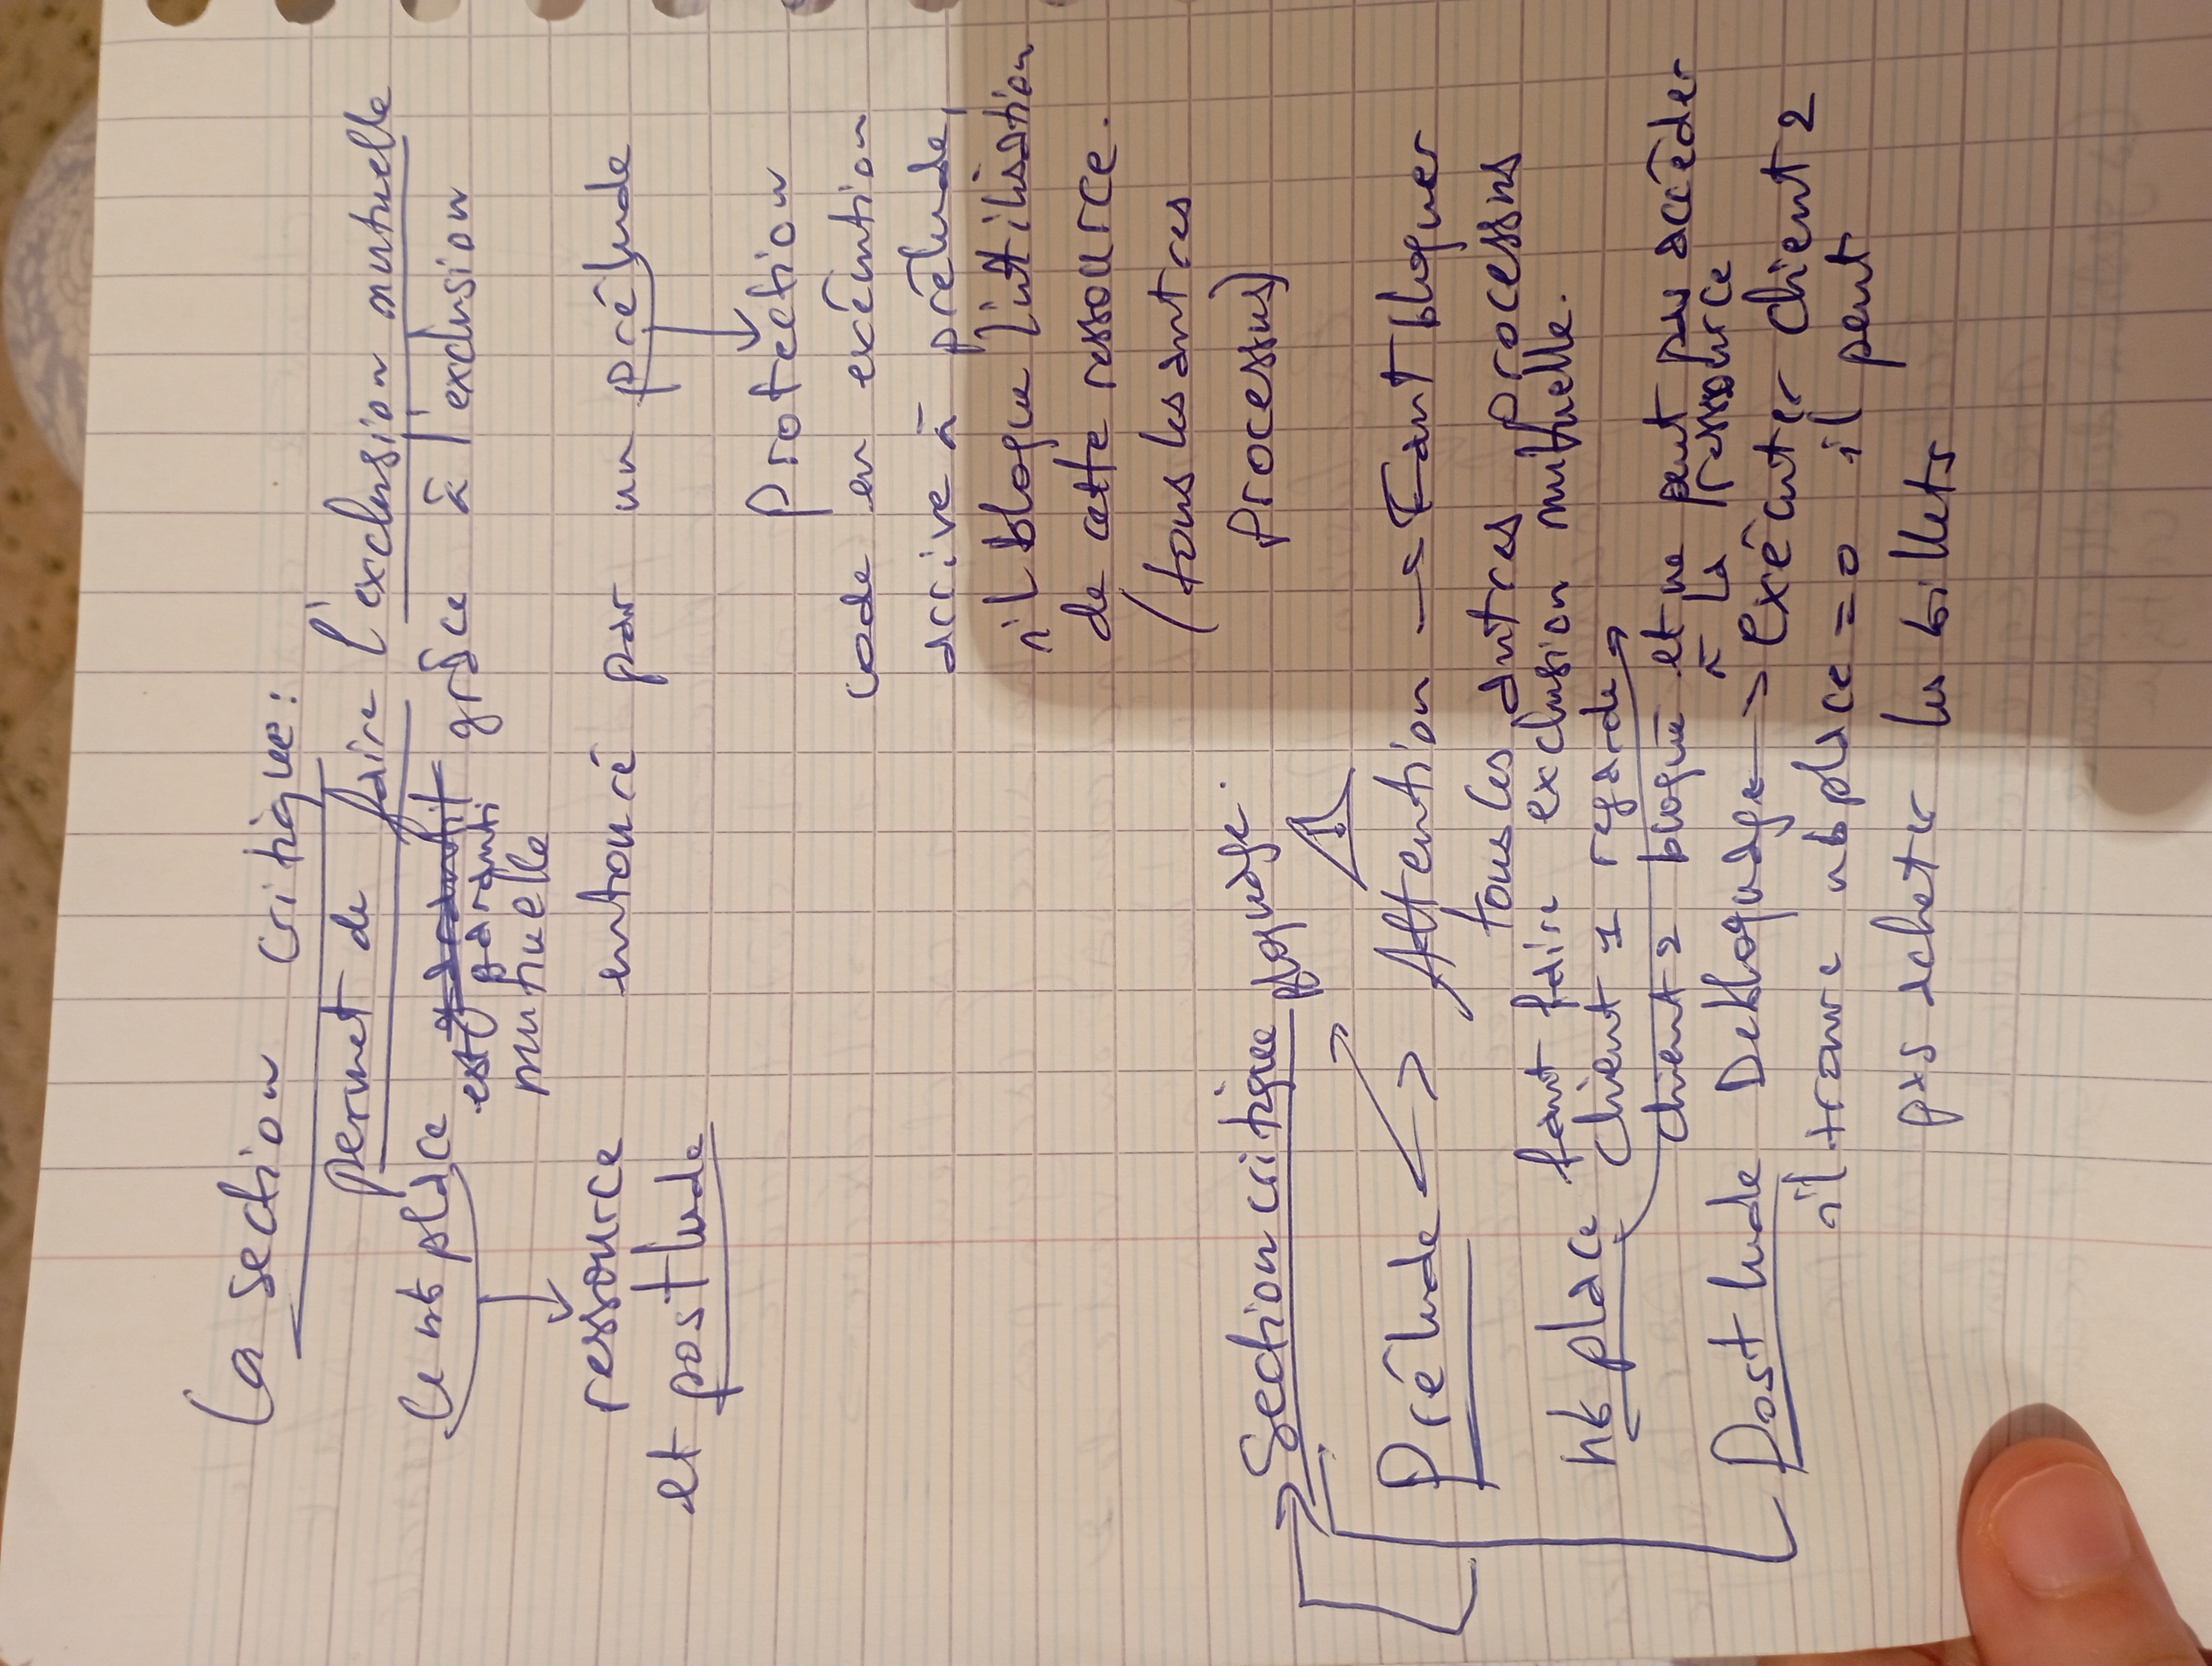 La section critique :
permet de faire l'exclusion mutuelle
Le nb place est garanti grâce à l'exclusion
mutuelle
ressource entouré par un prélude
et postlude
Protection
code en exécution
arrive à prélude,
il bloque l'utilisation
de cette ressource.
(tous les autres
processus)
Section critique Bloquage.
Prélude <-> Attention → Faut bloquer
tous les autres processus
faut faire exclusion mutuelle.
nb place client 1 regarde
client 2 bloqué et ne peut pas accéder
à la ressource
Postlude Debloquage → Exécuter client 2
il trouve nb place = 0 il peut
pas acheter les billets